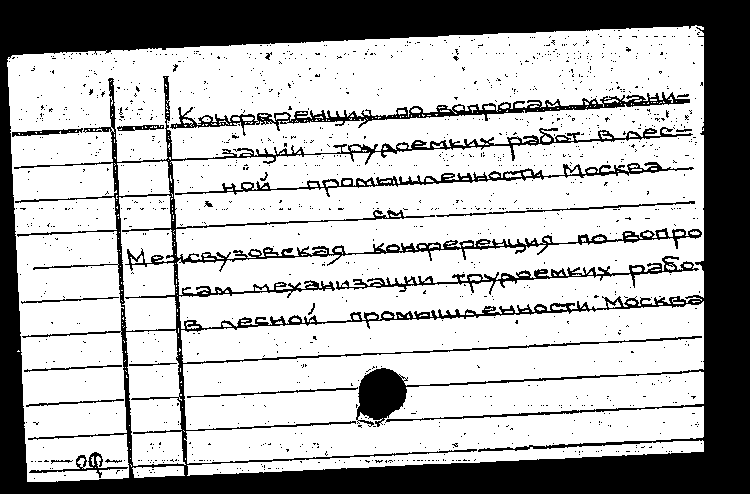 Конференция по вопросам механи=
зации трудоемких работ в лес=
ной промышленности. Москва
см
Межвузовская конференция по вопро
сам механизации трудоемких работ
в лесной промышленности. Москва
оф